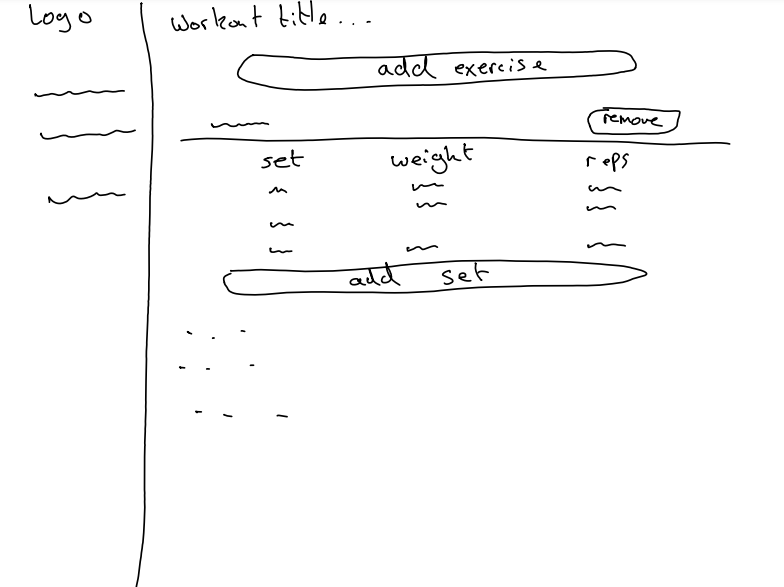 Logo
Workout title...
add exercise
remove
set weight reps
add set